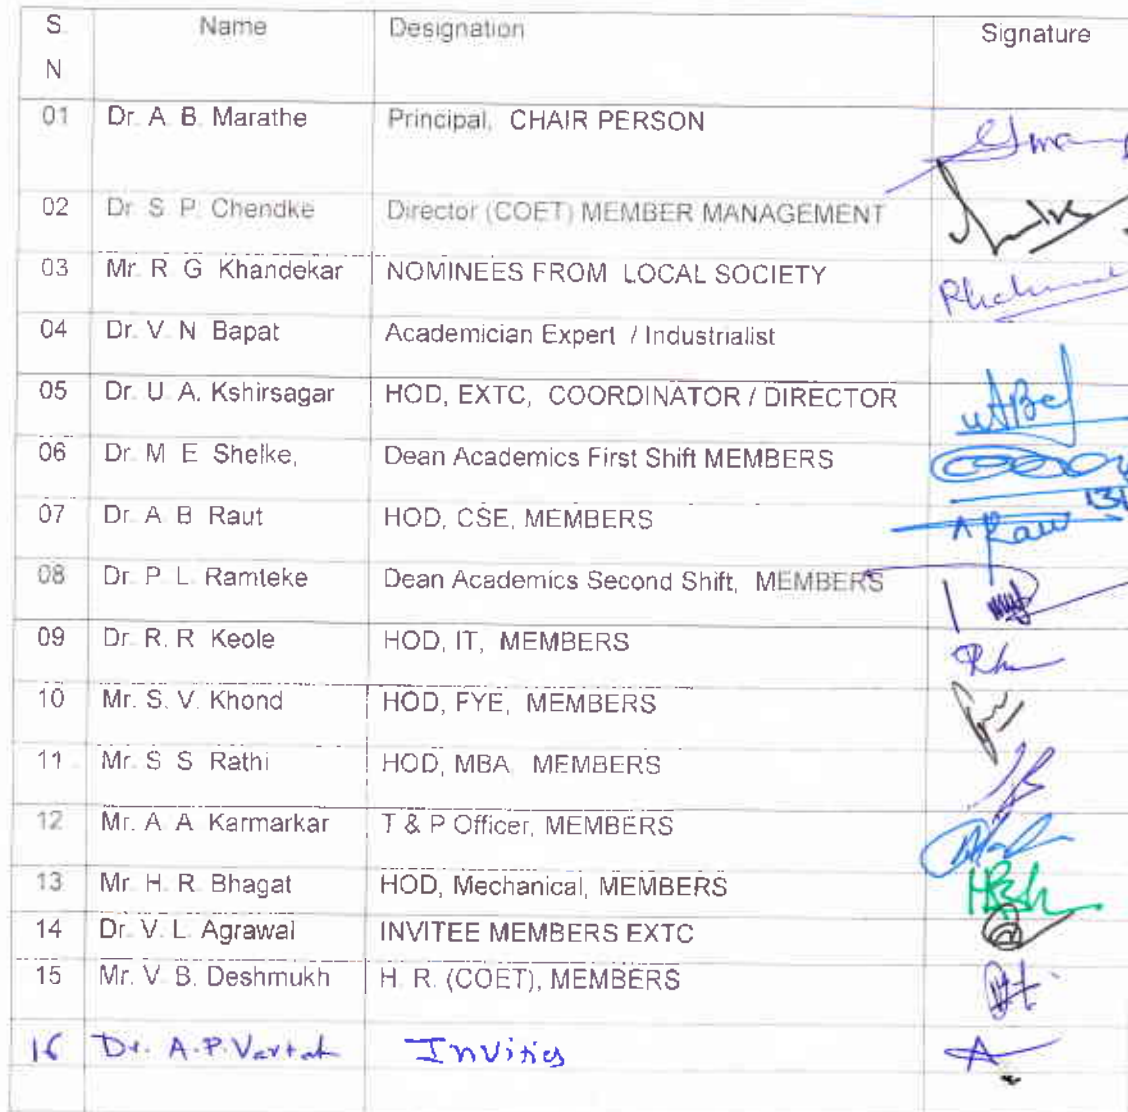 S. Name Designation Signature
N
01 Dr. A. B. Marathe Principal, CHAIR PERSON
02 Dr. S. P. Chendke Director (COET) MEMBER MANAGEMENT
03 Mr. R. G. Khandekar NOMINEES FROM LOCAL SOCIETY
04 Dr. V. N. Bapat Academician Expert / Industrialist
05 Dr. U. A. Kshirsagar HOD, EXTC, COORDINATOR / DIRECTOR
06 Dr. M. E. Shelke, Dean Academics First Shift MEMBERS
07 Dr. A. B. Raut HOD, CSE, MEMBERS
08 Dr. P. L. Ramteke Dean Academics Second Shift, MEMBERS
09 Dr. R. R. Keole HOD, IT, MEMBERS
10 Mr. S. V. Khond HOD, FYE, MEMBERS
11 Mr. S. S. Rathi HOD, MBA MEMBERS
12 Mr. A. A. Karmarkar T & P Officer, MEMBERS
13 Mr. H. R. Bhagat HOD, Mechanical, MEMBERS
14 Dr. V. L. Agrawal INVITEE MEMBERS EXTC
15 Mr. V. B. Deshmukh H. R. (COET), MEMBERS
16 Dr. A.P. Vartak